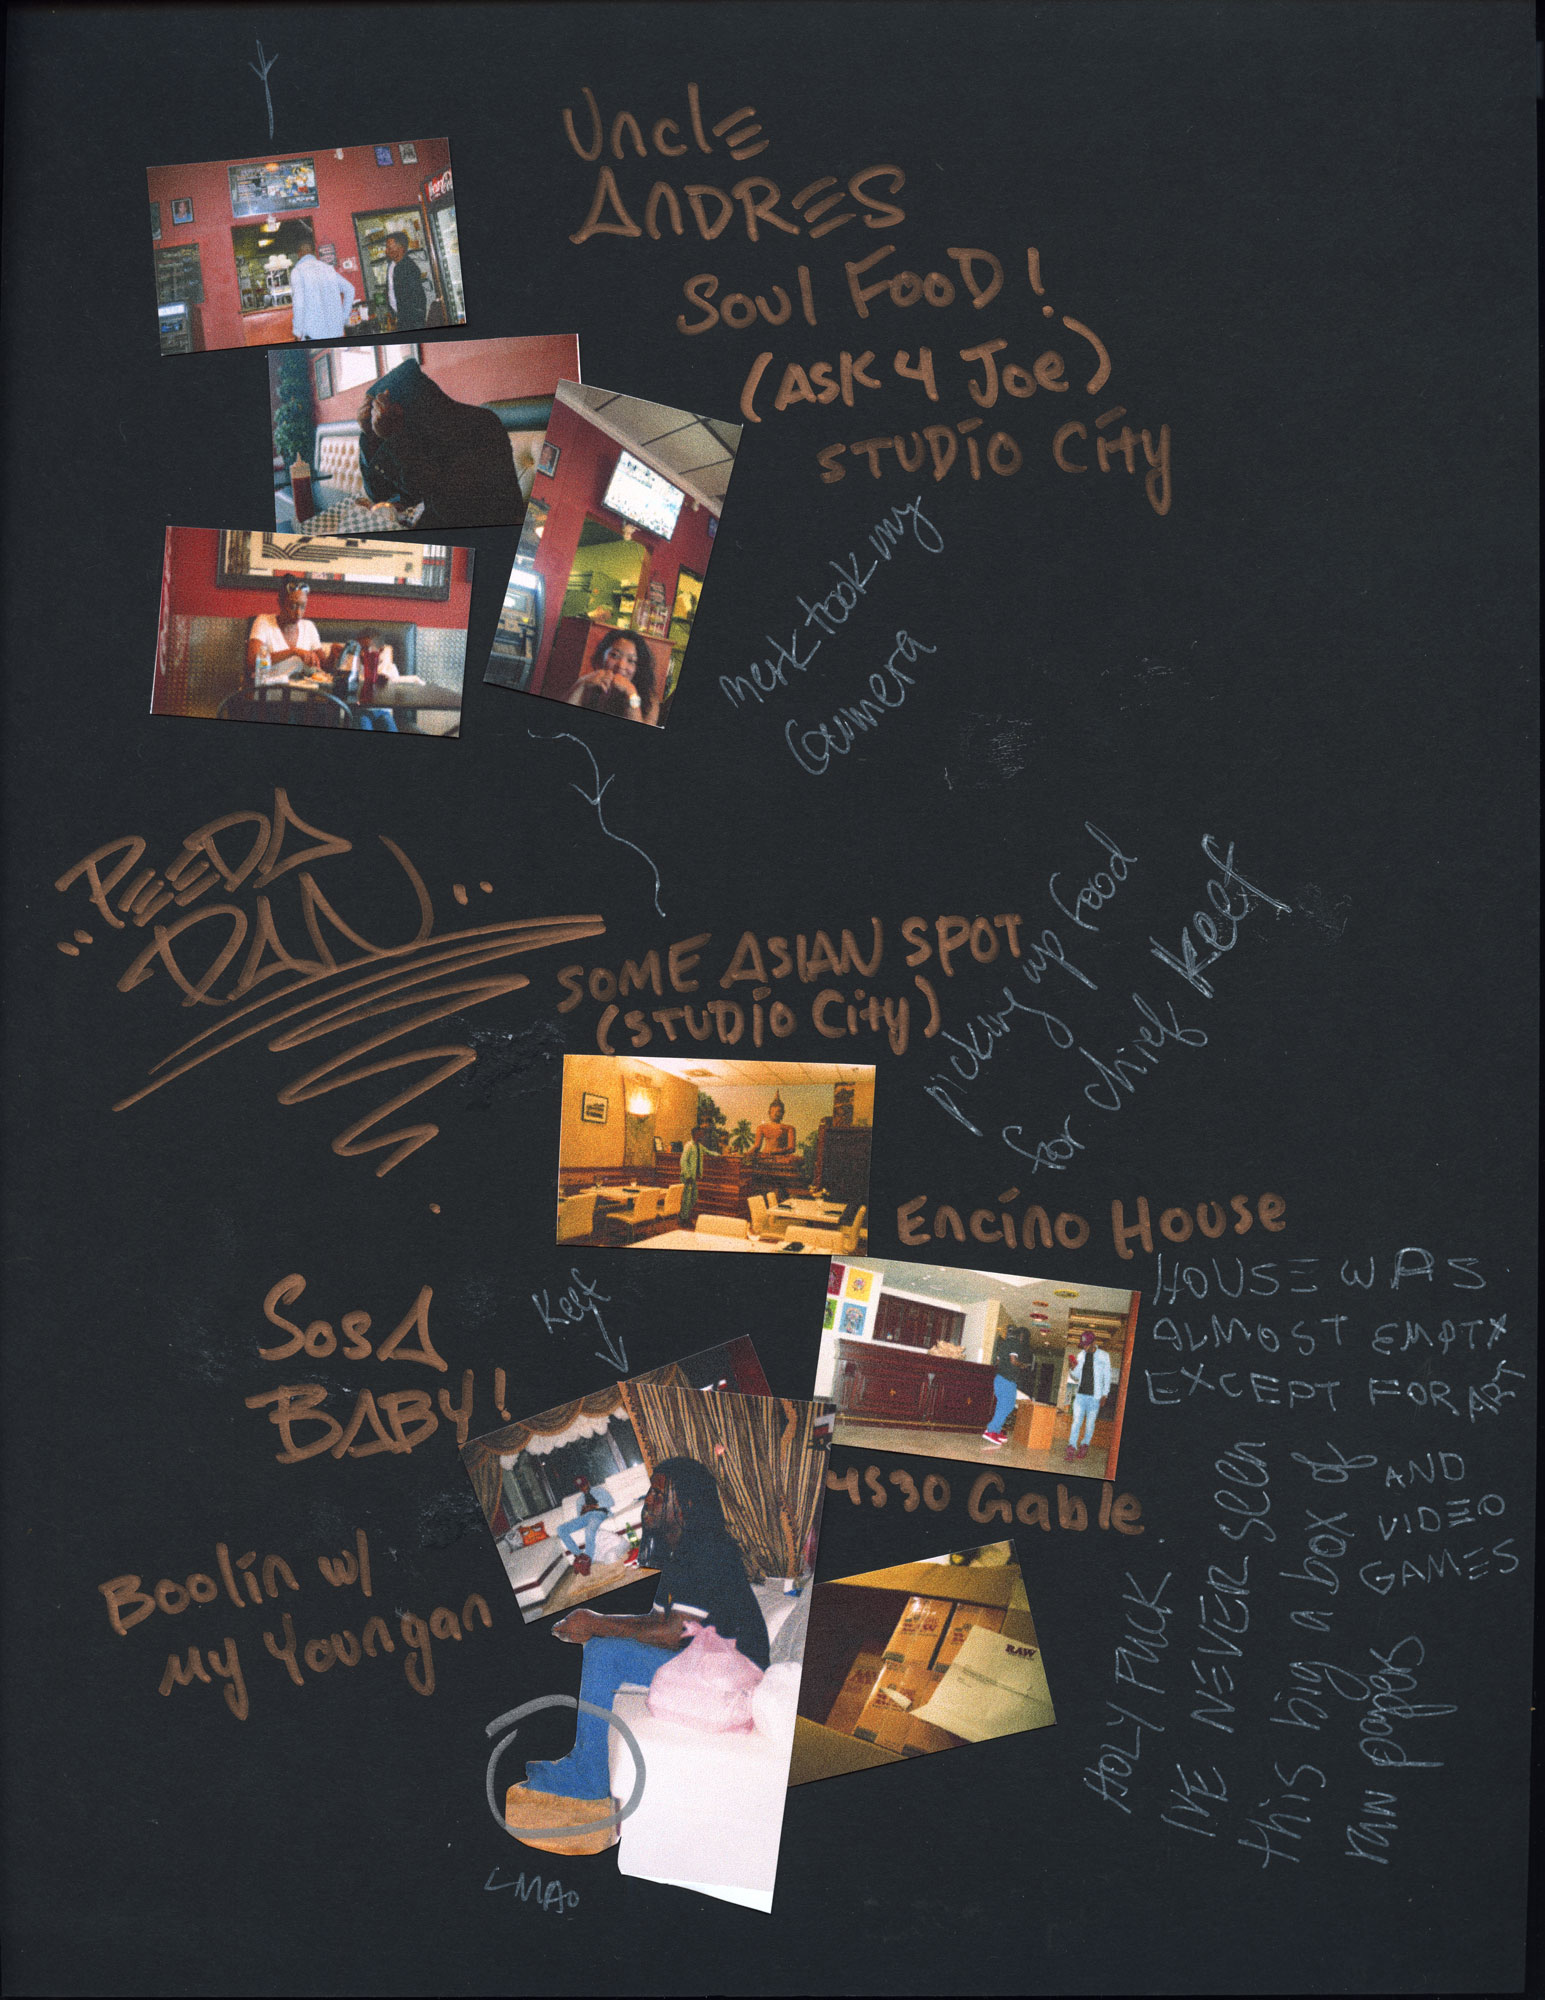 Uncle
ANDRES
Soul FooD!
(ASK 4 Joe)
STUDio City
Merk took my
Camera
"PEEDA
PAN"
SOME ASIAN SPOT
(STUDio City)
picking up food
for chief Keef
Encino House
HOUSE WAS
ALMOST EMPTY
EXCEPT FOR ART
AND
VIDEO
GAMES
Keef
SosA
BABY!
4530 Gable
Boolin w/
my Youngan
RAW
HOLY FUCK.
I'VE NEVER seen
this big a box of
raw papers
LMAO